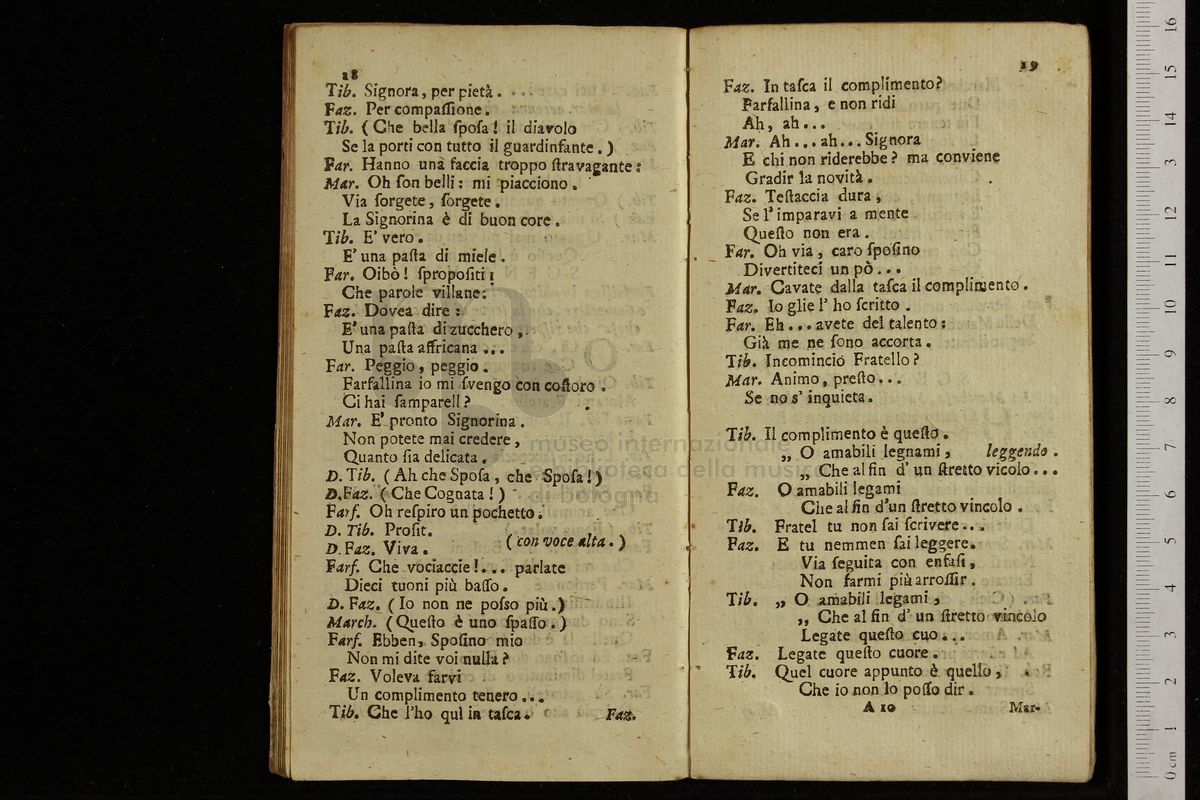 18
Tib. Signora, per pietà. . .
Faz. Per compaſſione.
Tib. (Che bella ſpoſa! il diavolo
Se la porti con tutto il guardinfante.)
Far. Hanno una faccia troppo ſtravagante:
Mar. Oh ſon belli: mi piacciono.
Via ſorgete, ſorgete.
La Signorina è di buon core.
Tib. E' vero.
E' una paſta di miele.
Far. Oibò! ſpropoſiti;
Che parole villane:
Faz. Dovea dire:
E' una paſta di zucchero,
Una paſta affricana...
Far. Peggio, peggio.
Farfallina io mi ſvengo con coſtoro.
Ci hai ſamparell?
Mar. E' pronto Signorina.
Non potete mai credere,
Quanto ſia delicata.
D. Tib. (Ah che Spoſa, che Spoſa!)
D. Faz. (Che Cognata!)
Farf. Oh reſpiro un pochetto.
D. Tib. Profit.
D. Faz. Viva. (con voce alta.)
Farf. Che vociaccie!... parlate
Dieci tuoni più baſſo.
D. Faz. (Io non ne poſso più.)
March. (Queſto è uno ſpaſſo.)
Farf. Ebben, Spoſino mio
Non mi dite voi nulla?
Faz. Voleva farvi
Un complimento tenero...
Tib. Che l'ho quì in taſca.
Faz.
19
Faz. In taſca il complimento?
Farfallina, e non ridi
Ah, ah...
Mar. Ah...ah...Signora
E chi non riderebbe? ma conviene
Gradir la novità.
Faz. Teſtaccia dura,
Se l'imparavi a mente
Queſto non era.
Far. Oh via, caro ſpoſino
Divertiteci un pò...
Mar. Cavate dalla taſca il complimento.
Faz. Io glie l' ho ſcritto.
Far. Eh...avete del talento:
Già me ne ſono accorta.
Tib. Incominciò Fratello?
Mar. Animo, preſto...
Se no s' inquieta.
Tib. Il complimento è queſto.
„ O amabili legnami, leggendo.
„ Che al fin d' un ſtretto vicolo...
Faz. O amabili legami
Che al fin d'un ſtretto vincolo.
Tib. Fratel tu non ſai ſcrivere...
Faz. E tu nemmen ſai leggere.
Via ſeguita con enfaſi,
Non farmi più arroſſir.
Tib. „ O amabili legami,
„ Che al fin d' un ſtretto vincolo
Legate queſto cuo...
Faz. Legate queſto cuore.
Tib. Quel cuore appunto è quello,
Che io non lo poſſo dir.
A 10
Mar-
museo internazionale
e biblioteca della musica
di bologna
0 cm 1 2 3 4 5 6 7 8 9 10 11 12 13 14 15 16